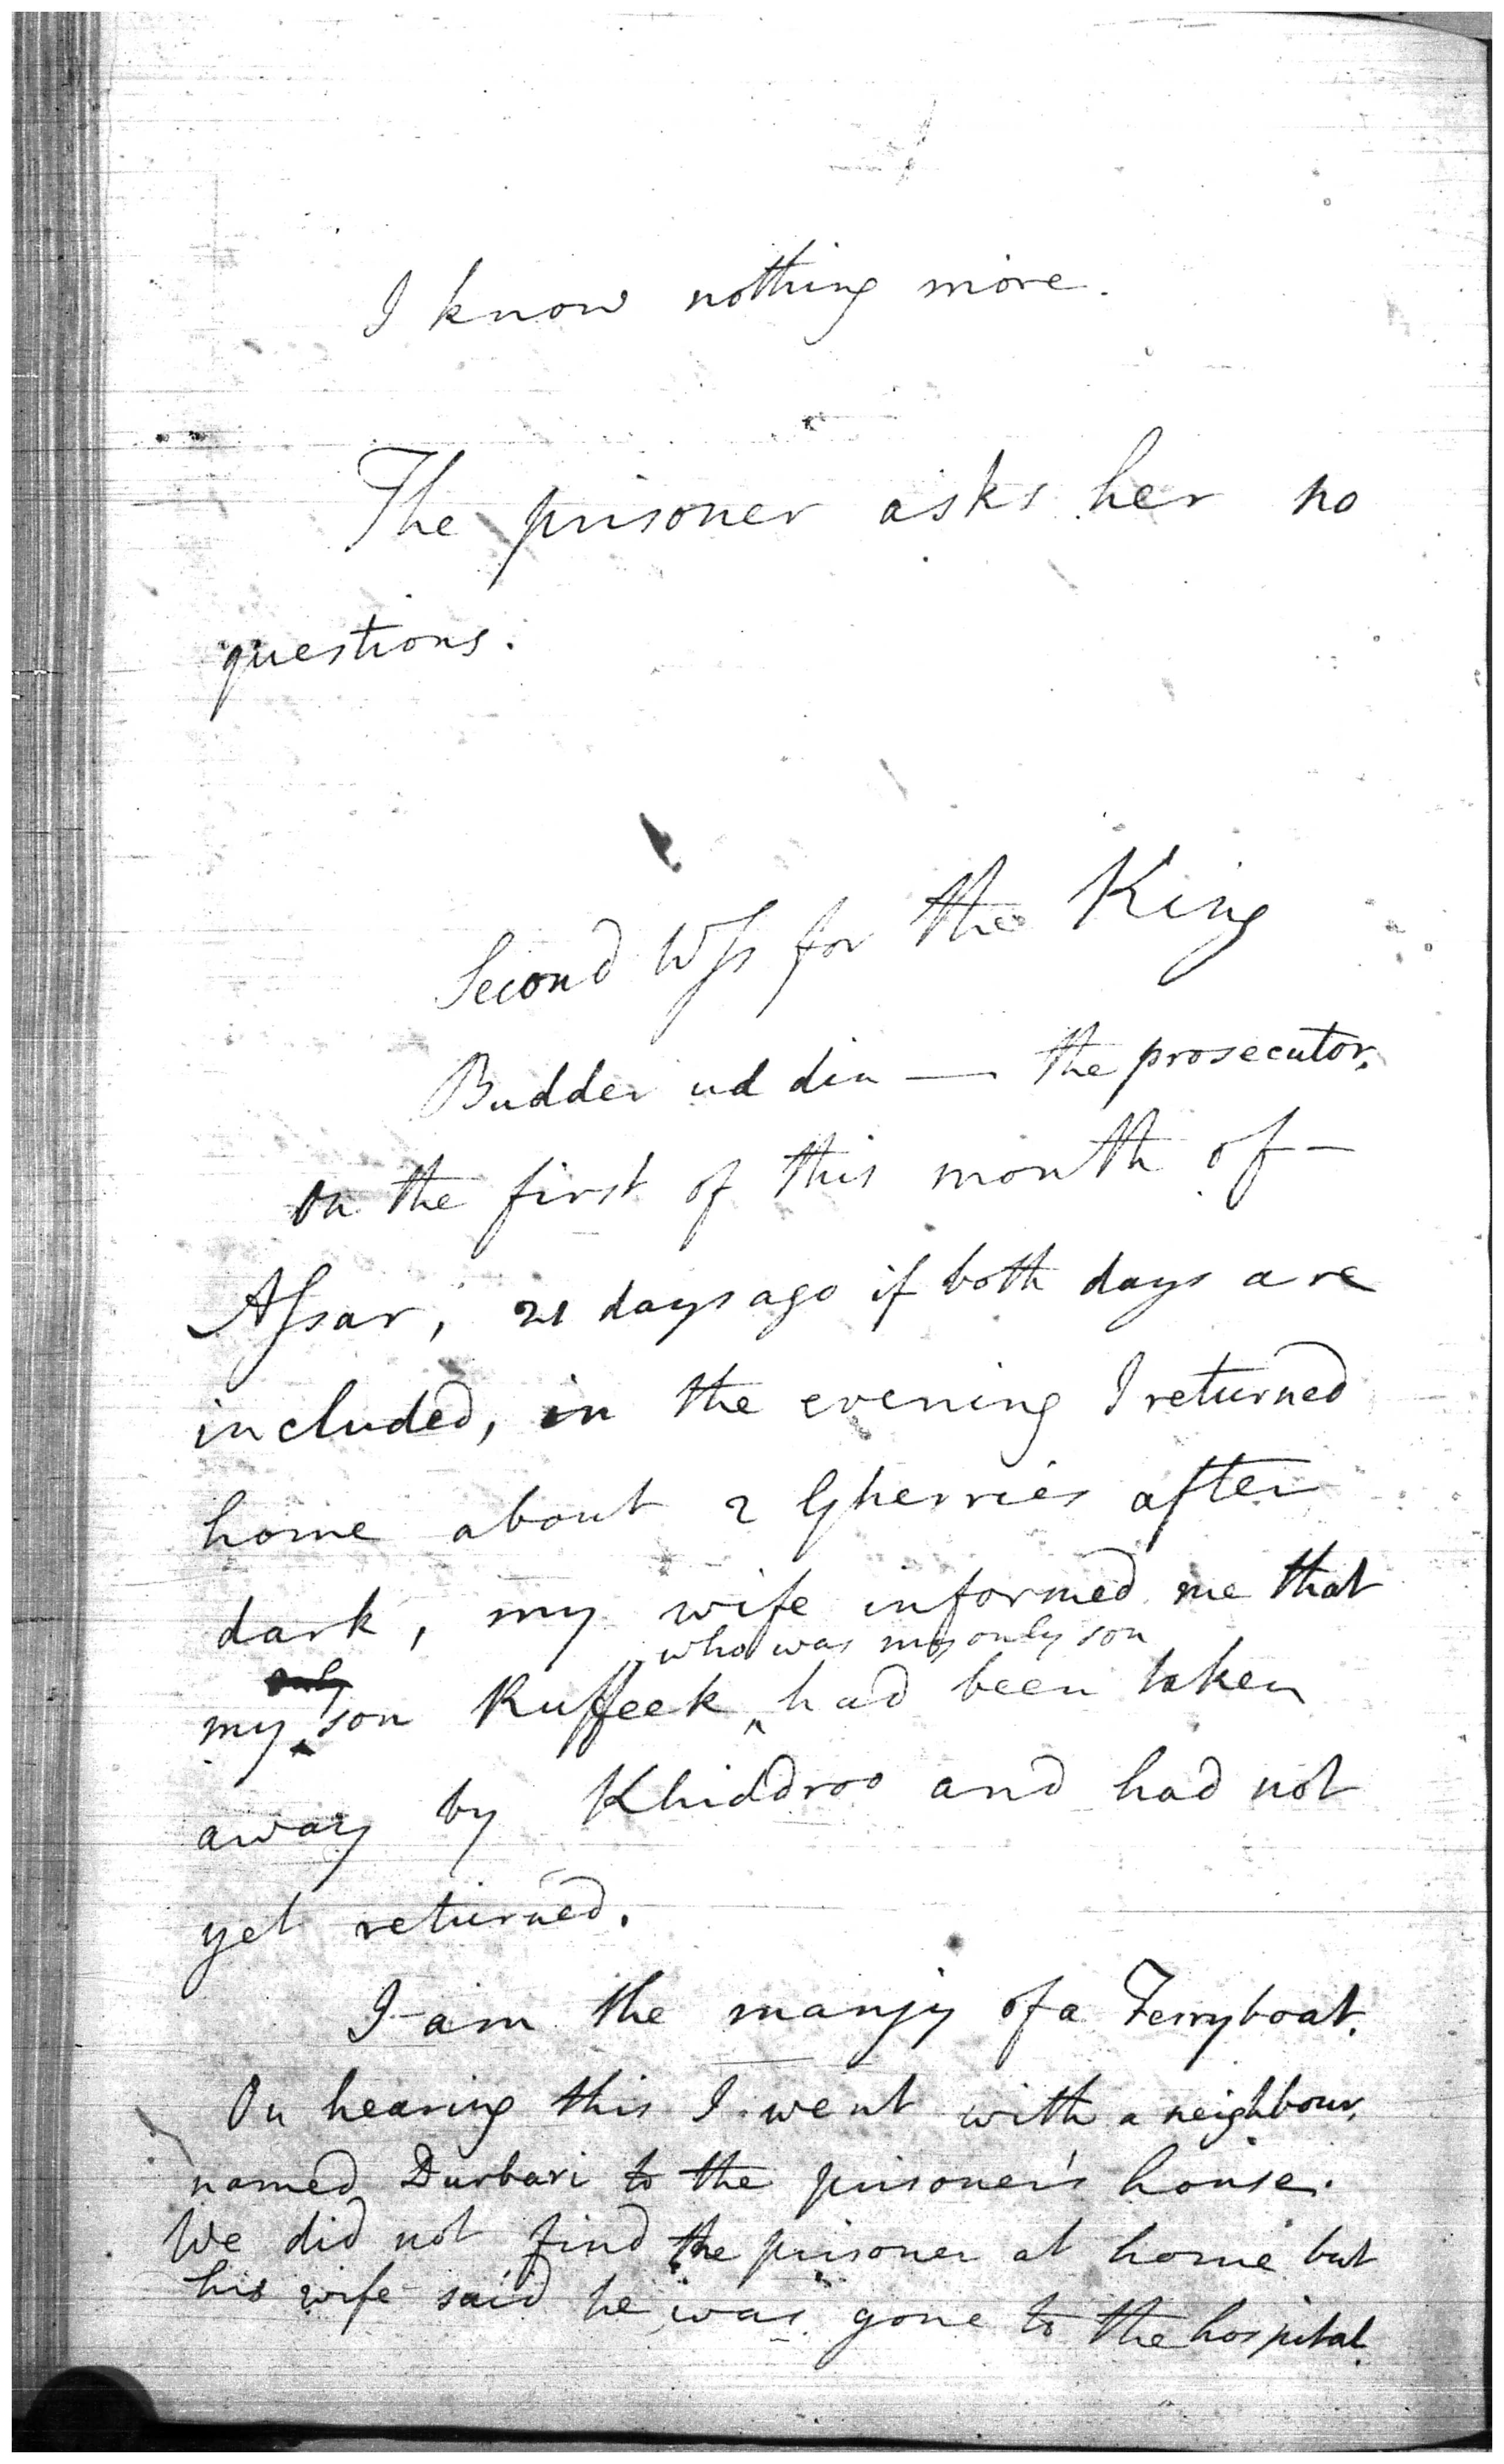 I know nothing more.
The prisoner asks her no
questions.
Second Wss for the King
Budder ud din — the prosecutor.
On the first of this month of —
Assar, 21 days ago if both days are
included, in the evening I returned
home about 2 Gherries after
dark, my wife informed me that
who was my only son
only
my son Ruffeek had been taken
away by Khiddroo and had not
yet returned.
I am the manjy of a Ferryboat.
On hearing this I went with a neighbour,
named Durbari to the prisoner's house.
We did not find the prisoner at home but
his wife said he was gone to the hospital.